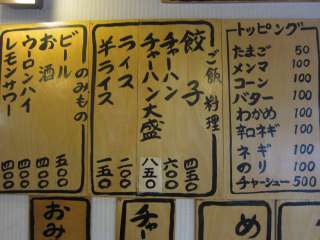 トッピング
たまご 50
メンマ 100
コーン 100
バター 100
わかめ 100
辛口ネギ 100
ネギ 100
のり 100
チャーシュー 500
ご飯、料理
餃子 四五〇
チャーハン 六〇〇
チャーハン大盛 八五〇
ライス 二〇〇
半ライス 一五〇
のみもの
ビール 五〇〇
お酒 四〇〇
ウーロンハイ 四〇〇
レモンサワー 四〇〇
おみ
チャー
め